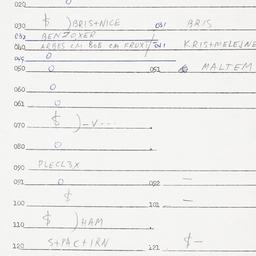 020 0
030 $ )BRIS+NICE 031 BRIS
032 BENZOXER
040 041 KRIS+MELEJNE
045 0
050 0 051 MALTEM
060 0
061 0
070 $ )-V---
080 0
090 PLECL3X
091 0 092 —
100 $ 101 —
110 $ )HAM
120 S+PAC+IRN 121 $—